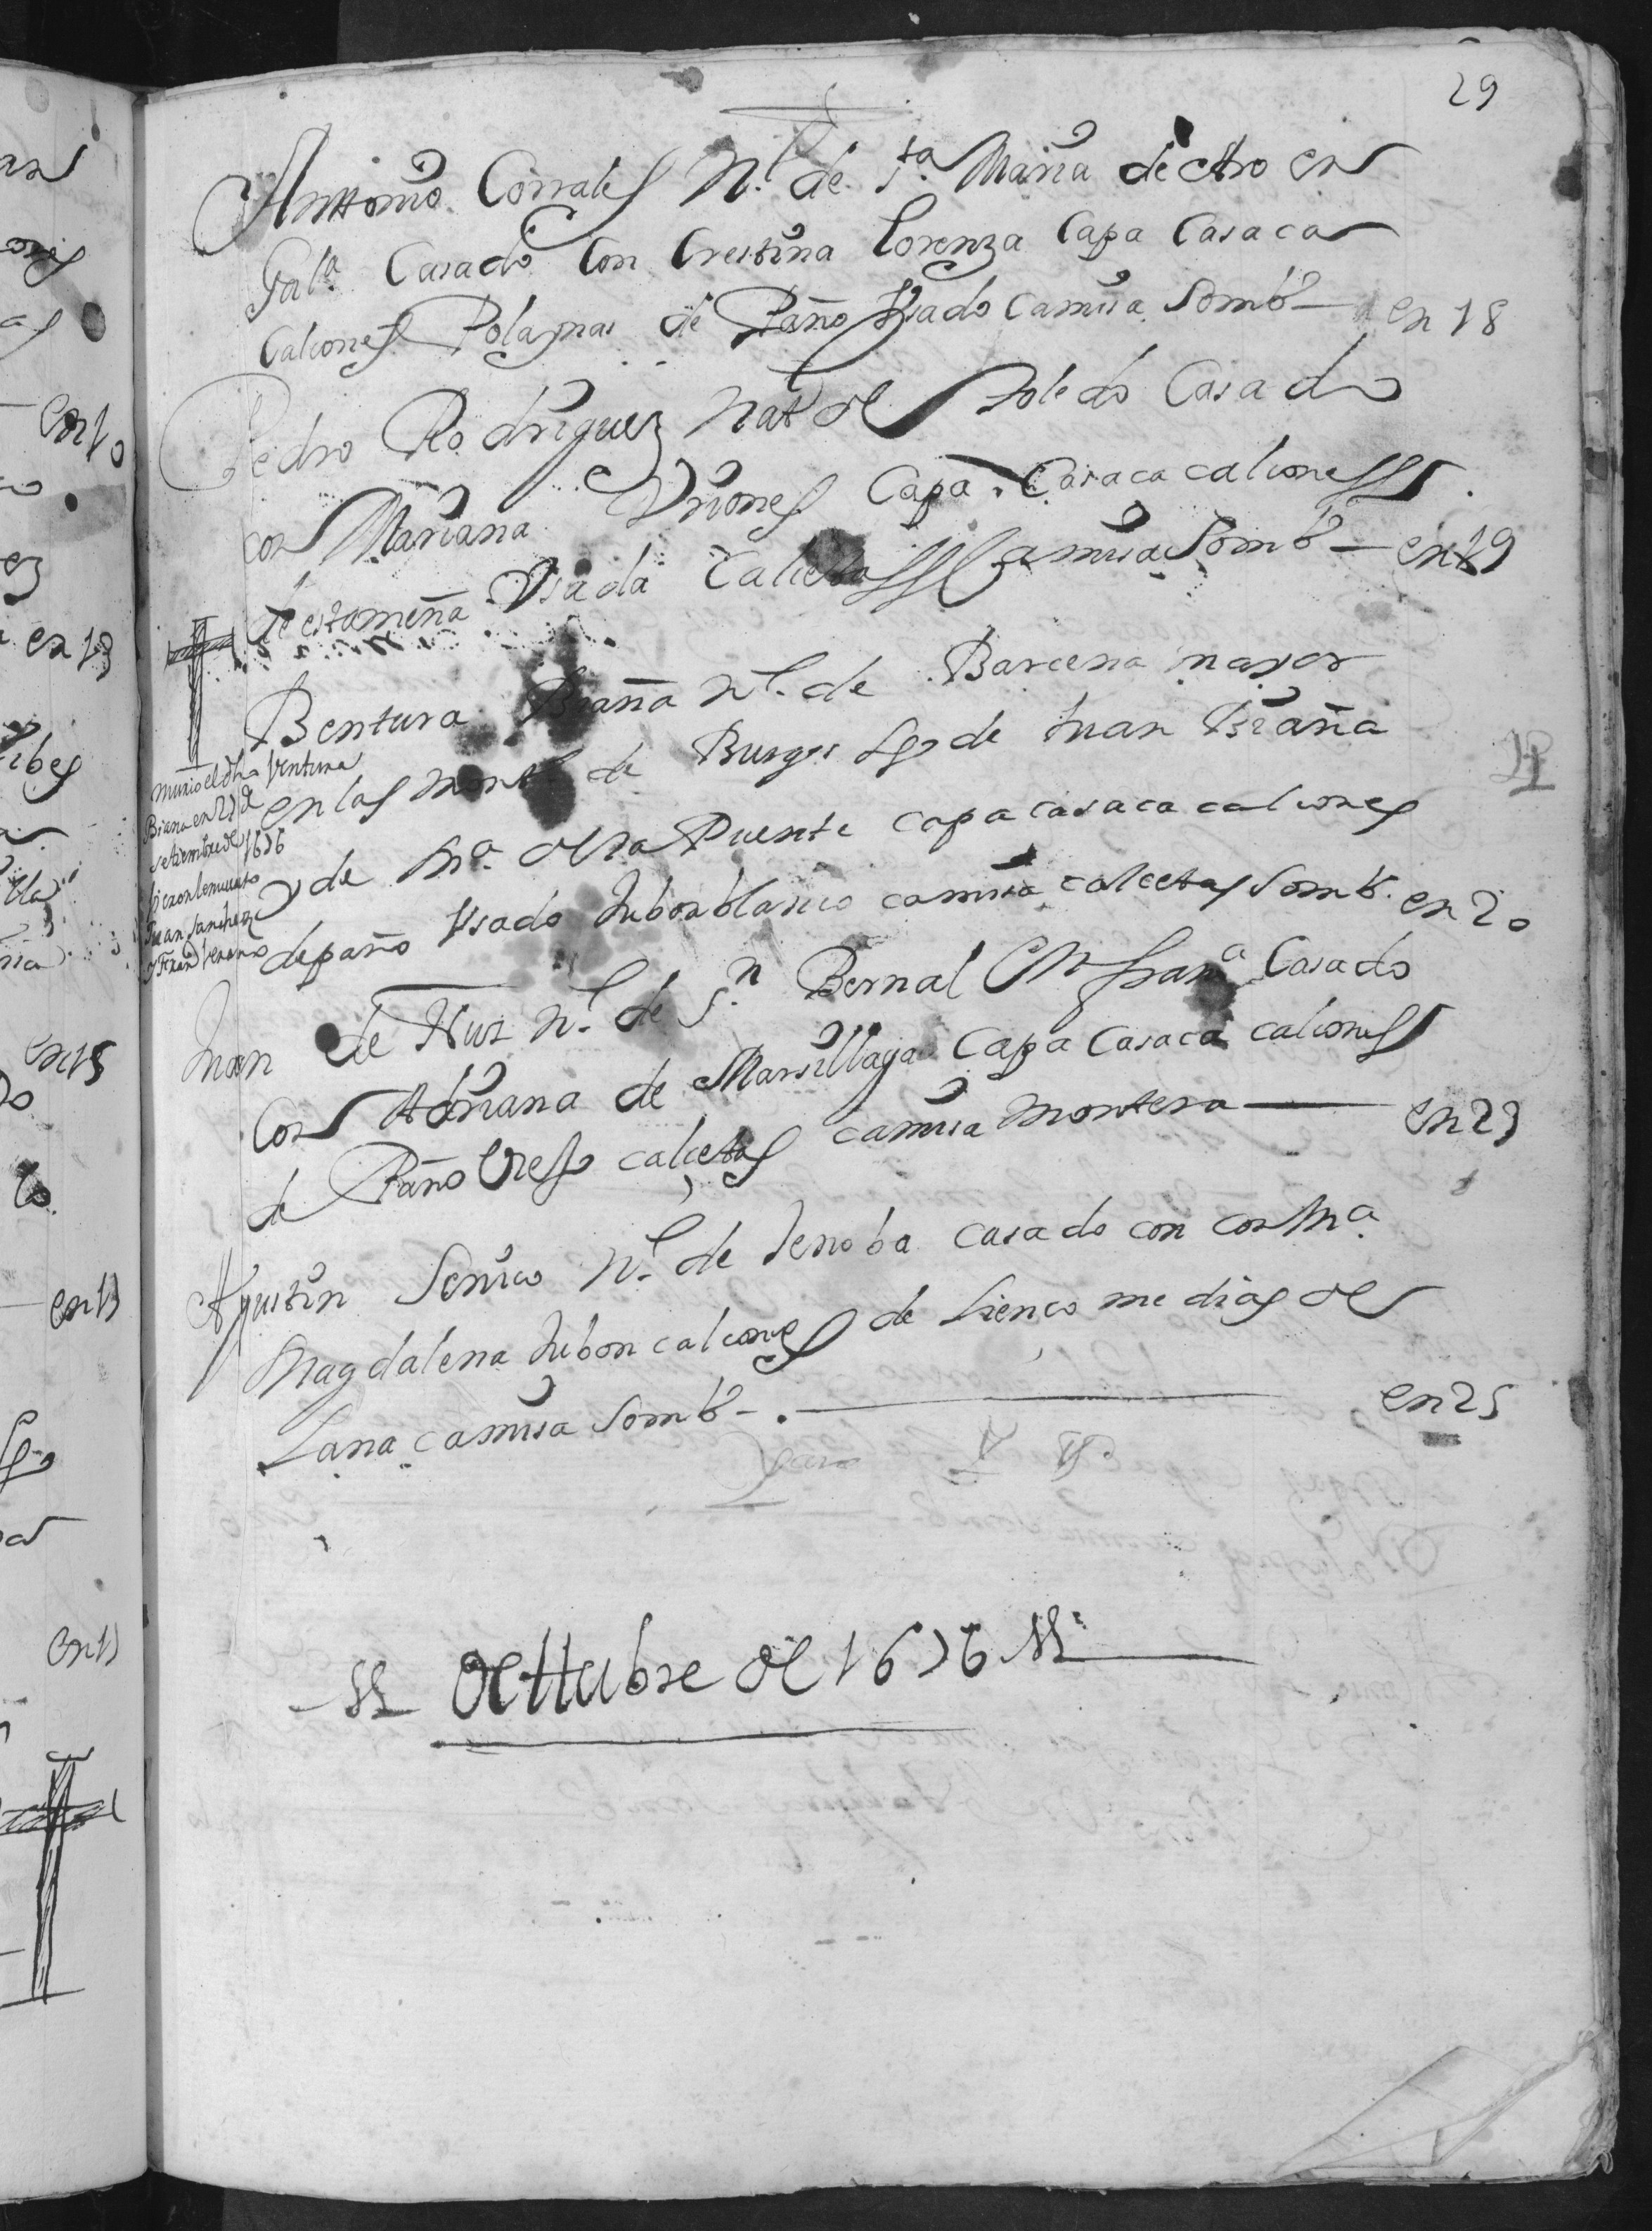 29
Anttonio Corrales N.l de S.ta Maria de ctro en
Gal.a Casado Con Crestina Lorenza Capa Casaca
Calçones Polaynas de Paño Usado Camisa Sombo — en 18
Pedro Rodriguez Natl de toledo Casado
con Mariana Briones Capa Casaca calçones
de estameña Usada Calcetas Camisa Sombo — en 19
Bentura Braña Nl. de Barcena mayor
en las montas de Burgos hijo de Juan Braña
y de Ma. de la Puente capa casaca calçones
de paño Usado Jubon blanco camisa calcetas Sombo. en 20
murio el dho Ventura
Biana en 27 de
setiembre de 1676
Juan Sanchez
Juan de Nuz Nl. de S.n Bernal en fran.a Casado
Con Adriana de Marsillaga Capa Casaca calçones
de Paño calcetas camisa montera — en 23
Agustin Senico Nl. de Jenoba casado con con Ma
Magdalena Jubon calçones de Lienço medias de
Lana camisa Sombo — en 25
Octtubre de 1676